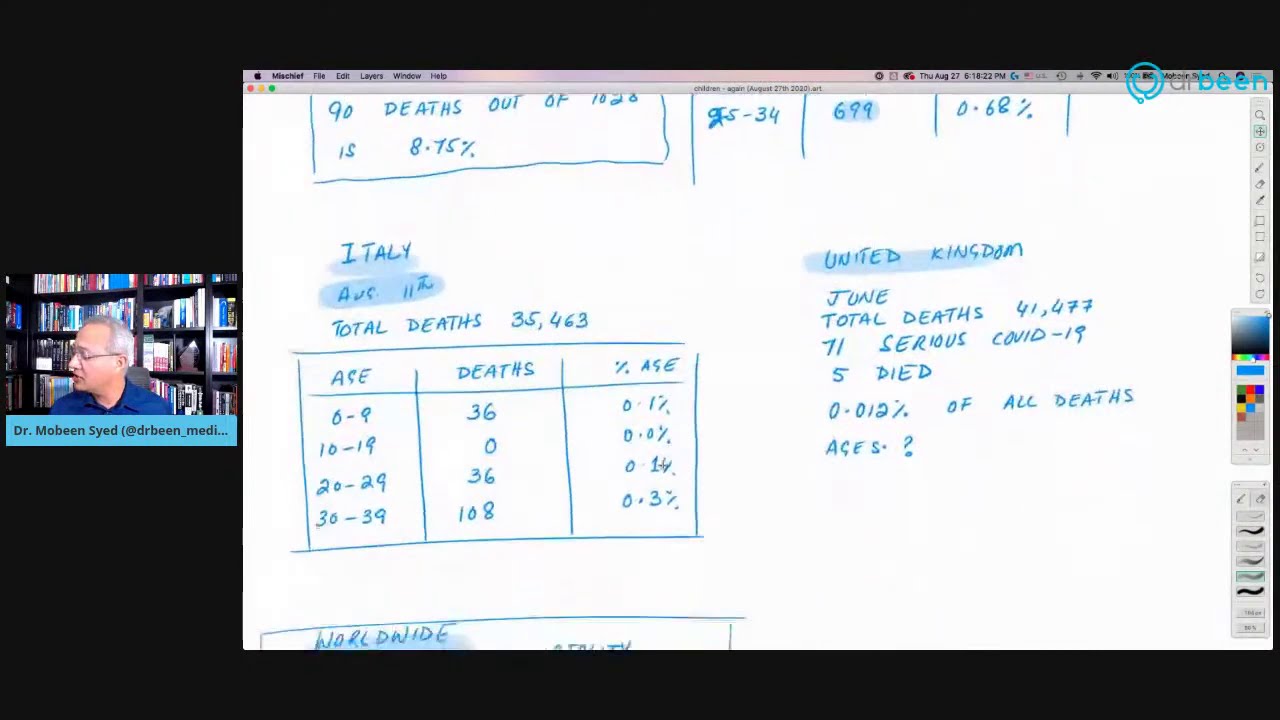 drbeen
Mischief File Edit Layers Window Help
Thu Aug 27 6:18:22 PM
Mobeen Syed
children - again (August 27th 2020).art
90 DEATHS OUT OF 1028
IS 8.75%
25-34 699 0.68%
ITALY
AUG. 11TH
TOTAL DEATHS 35,463
AGE DEATHS % AGE
0-9 36 0.1%
10-19 0 0.0%
20-29 36 0.1%
30-39 108 0.3%
UNITED KINGDOM
JUNE
TOTAL DEATHS 41,477
71 SERIOUS COVID-19
5 DIED
0.012% OF ALL DEATHS
AGES. ?
WORLDWIDE
Dr. Mobeen Syed (@drbeen_medi...